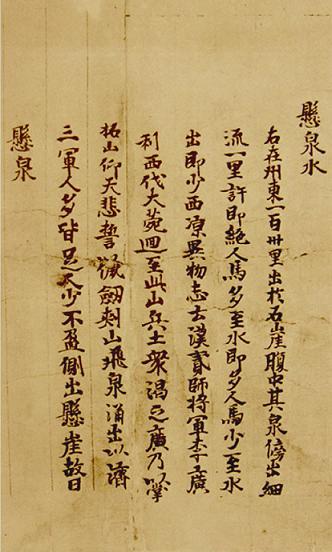 懸泉水
右在州東一百卅里出於石崖腹中其泉傍出細
流一里許即絕人馬多至水即多人馬少至水
出即少西涼異物志云漢貳師將軍李廣
利西伐大菀迴至此山兵士衆渴乏廣乃以掌
拓山仰天悲誓佩劒刾山飛泉涌出以濟
三軍人多皆足人少不盈側出懸崖故曰
懸泉